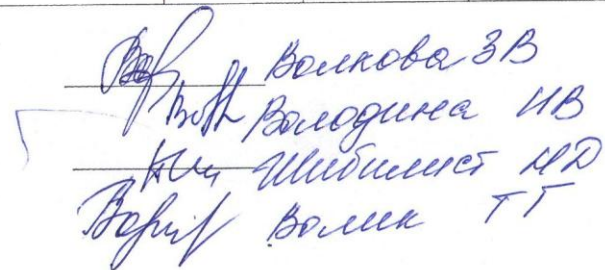 Волкова ЗВ
Володина ИВ
Шибилист НД
Волик ТГ